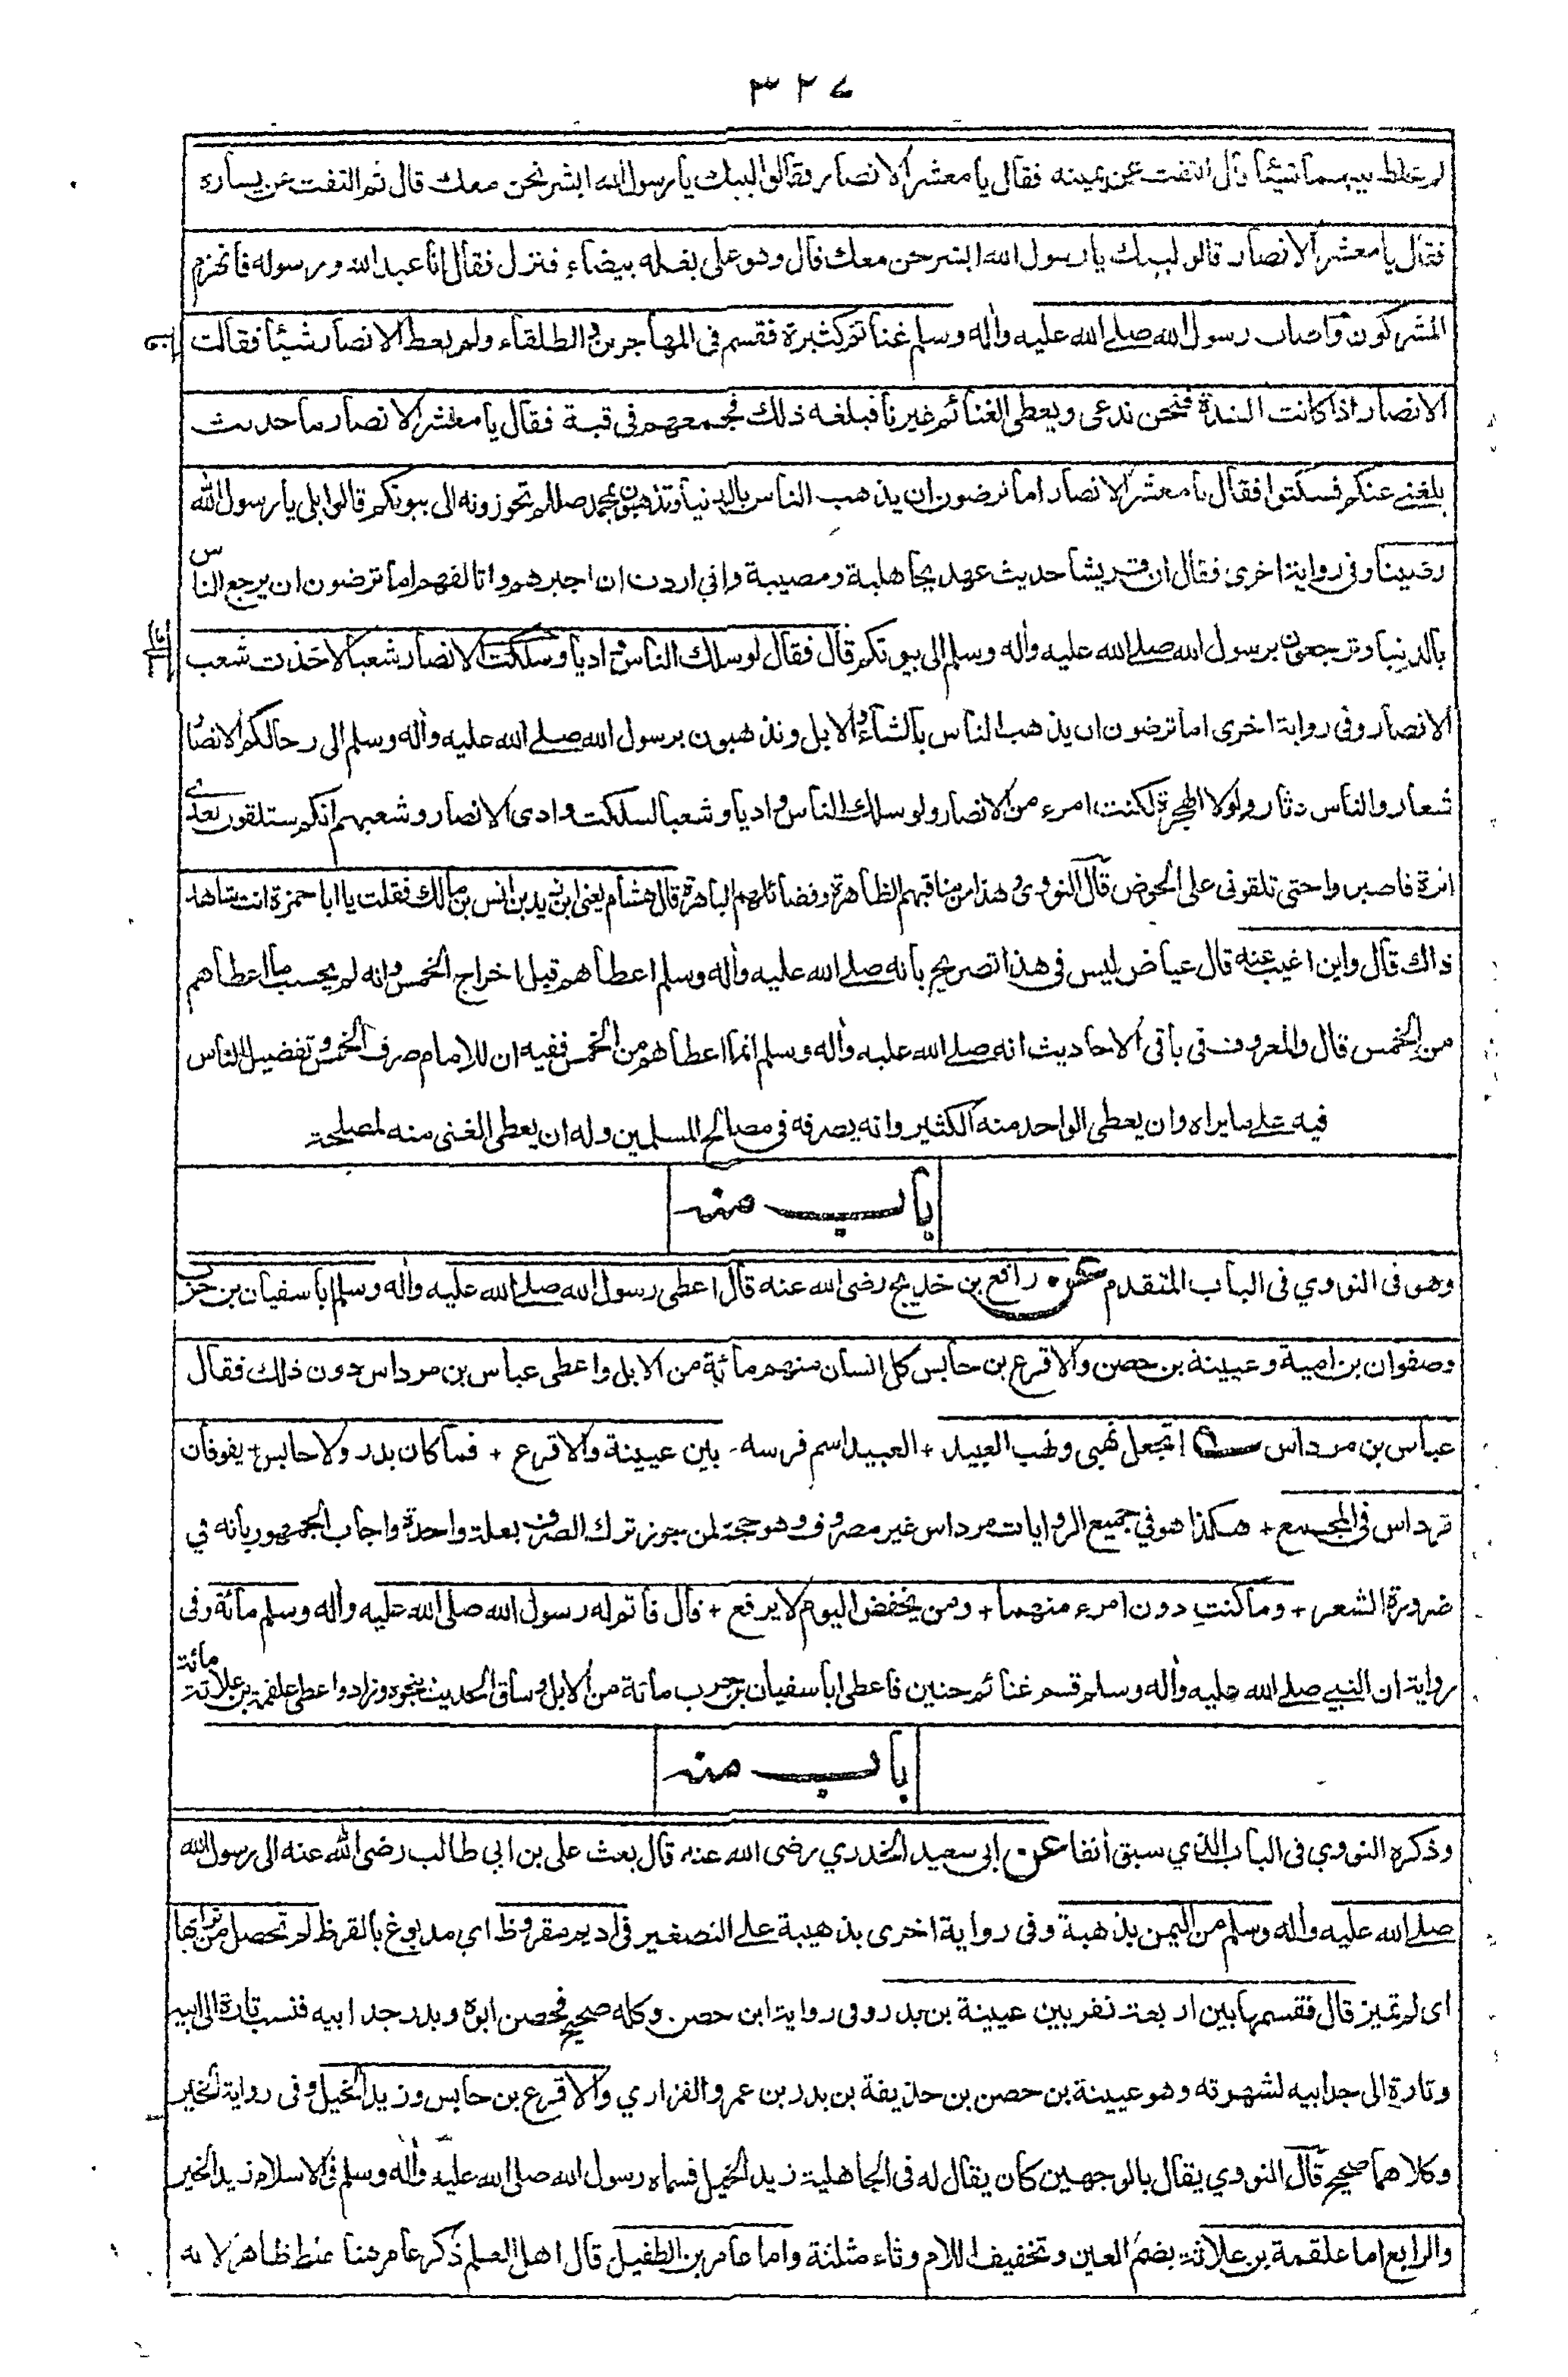 ٣٢٧
لم يخلط بينهما شيئا قال التفت عن يمينه فقال يا معشر الانصار فقالوا لبيك يا رسول الله ابشر نحن معك قال ثم التفت عن يساره
فقال يا معشر الانصار قالوا لبيك يا رسول الله ابشر نحن معك قال وهو على بغلة بيضاء فنزل فقال انا عبد الله ورسوله فانهزم
المشركون واصاب رسول الله صلى الله عليه واله وسلم غنائم كثيرة فقسم في المهاجرين والطلقاء ولم يعط الانصار شيئا فقالت
الانصار اذا كانت الشدة فنحن ندعى ويعطى الغنائم غيرنا فبلغه ذلك فجمعهم في قبة فقال يا معشر الانصار ما حديث
بلغني عنكم فسكتوا فقال يا معشر الانصار اما ترضون ان يذهب الناس بالدنيا وتذهبون بمحمد صللم تحوزونه الى بيوتكم قالوا بلى يا رسول الله
رضينا وفي رواية اخرى فقال ان قريشا حديث عهد بجاهلية ومصيبة واني اردت ان اجبرهم واتالفهم اما ترضون ان يرجع الناس
بالدنيا وترجعون برسول الله صلى الله عليه واله وسلم الى بيوتكم قال فقال لو سلك الناس واديا وسلكت الانصار شعبا لاخذت شعب
الانصار وفي رواية اخرى اما ترضون ان يذهب الناس بالشاء والابل وتذهبون برسول الله صلى الله عليه واله وسلم الى رحالكم الانصار
شعار والناس دثار ولولا الهجرة لكنت امرء من الانصار ولو سلك الناس واديا وشعبا لسلكت وادي الانصار وشعبهم انكم ستلقون بعدي
اثرة فاصبروا حتى تلقوني على الحوض قال النووي وهذا من مناقبهم الظاهرة وفضائلهم الباهرة قال هشام يعني ابن زيد بن انس بن مالك فقلت يا ابا حمزة انت شاهد
ذاك قال واين اغيب عنه قال عياض ليس في هذا تصريح بانه صلى الله عليه واله وسلم اعطاهم قبل اخراج الخمس وانه لم يحسب ما اعطاهم
من الخمس قال والمعروف في باقي الاحاديث انه صلى الله عليه واله وسلم انما اعطاهم من الخمس ففيه ان للامام صرف الخمس وتفضيل الناس
فيه على ما يراه وان يعطى الواحد منه الكثير وانه يصرفه في مصالح المسلمين وله ان يعطى الغني منه لمصلحة
باب منه
وهو في النووي في الباب المتقدم عن رافع بن خديج رضي الله عنه قال اعطى رسول الله صلى الله عليه واله وسلم ابا سفيان بن حرب
وصفوان بن امية وعيينة بن حصن والاقرع بن حابس كل انسان منهم مائة من الابل واعطى عباس بن مرداس دون ذلك فقال
عباس بن مرداس اتجعل نهبي ونهب العبيد + العبيد اسم فرسه - بين عيينة والاقرع + فما كان بدر ولا حابس + يفوقان
مرداس في المجمع + هكذا هو في جميع الروايات مرداس غير مصروف وهو حجة لمن يجوز ترك الصرف بعلة واحدة واجاب الجمهور بانه في
ضرورة الشعر + وما كنت دون امرء منهما + ومن يخفض اليوم لا يرفع + قال فاتم له رسول الله صلى الله عليه واله وسلم مائة وفي
رواية ان النبي صلى الله عليه واله وسلم قسم غنائم حنين فاعطى ابا سفيان بن حرب مائة من الابل وساق الحديث بنحوه وزاد واعطى علقمة بن علاثة مائة
باب منه
وذكره النووي في الباب الذي سبق انفا عن ابي سعيد الخدري رضي الله عنه قال بعث علي بن ابي طالب رضي الله عنه الى رسول الله
صلى الله عليه واله وسلم من اليمن بذهبة وفي رواية اخرى بذهيبة على التصغير في اديم مقروظ اي مدبوغ بالقرظ لم تحصل من ترابها
اي لم تميز قال فقسمها بين اربعة نفر بين عيينة بن بدر وفي رواية ابن حصن وكله صحيح فحصن ابوه وبدر جد ابيه فنسب تارة الى ابيه
وتارة الى جد ابيه لشهرته وهو عيينة بن حصن بن حذيفة بن بدر بن عمرو الفزاري والاقرع بن حابس وزيد الخيل وفي رواية الخير
وكلاهما صحيح قال النووي يقال بالوجهين كان يقال له في الجاهلية زيد الخيل فسماه رسول الله صلى الله عليه واله وسلم في الاسلام زيد الخير
والرابع اما علقمة بن علاثة بضم العين وتخفيف اللام وثاء مثلثة واما عامر بن الطفيل قال اهل العلم ذكر عامر هنا غلط ظاهر لانه